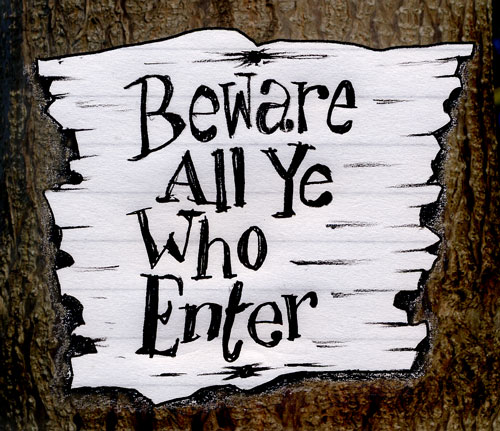 Beware
All Ye
Who
Enter